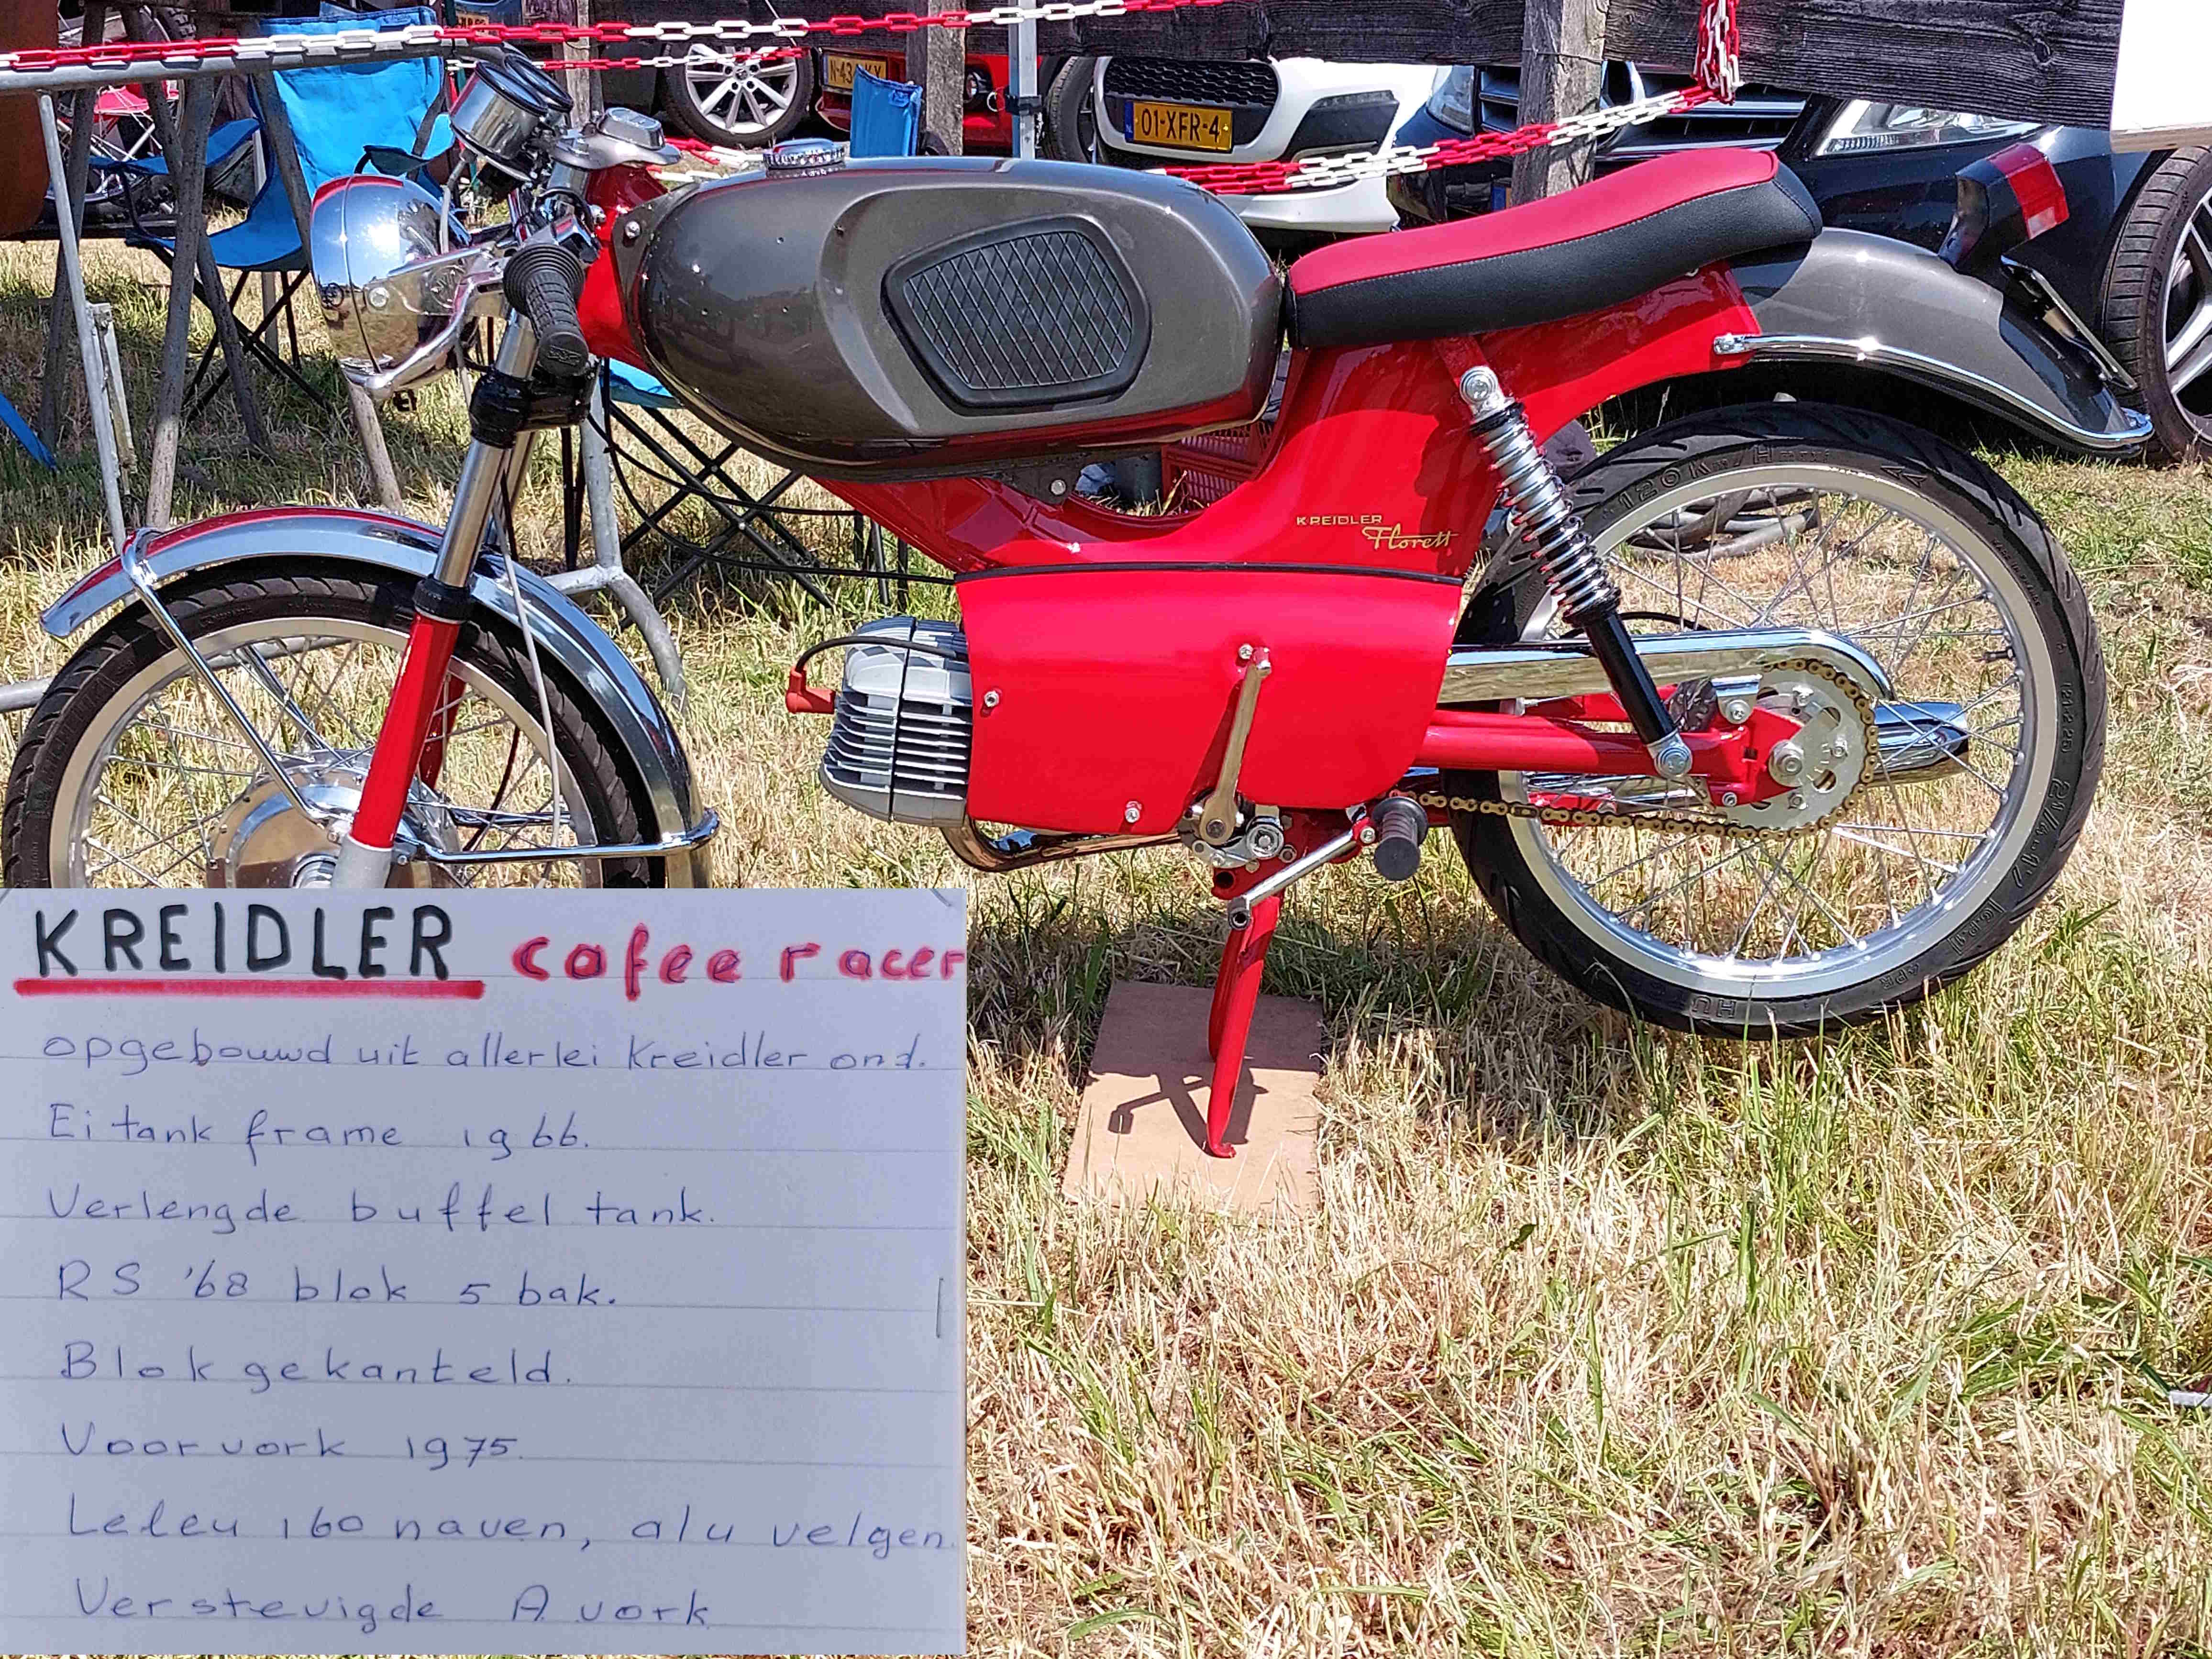 01-XFR-4
KREIDLER
Florett
120 Km/H
KREIDLER cafee racer
opgebouwd uit allerlei Kreidler ond.
Ei tank frame 1966.
Verlengde buffel tank.
RS '68 blok 5 bak.
Blok gekanteld.
Voorvork 1975.
Leleu 160 naven, alu velgen.
Verstevigde A vork